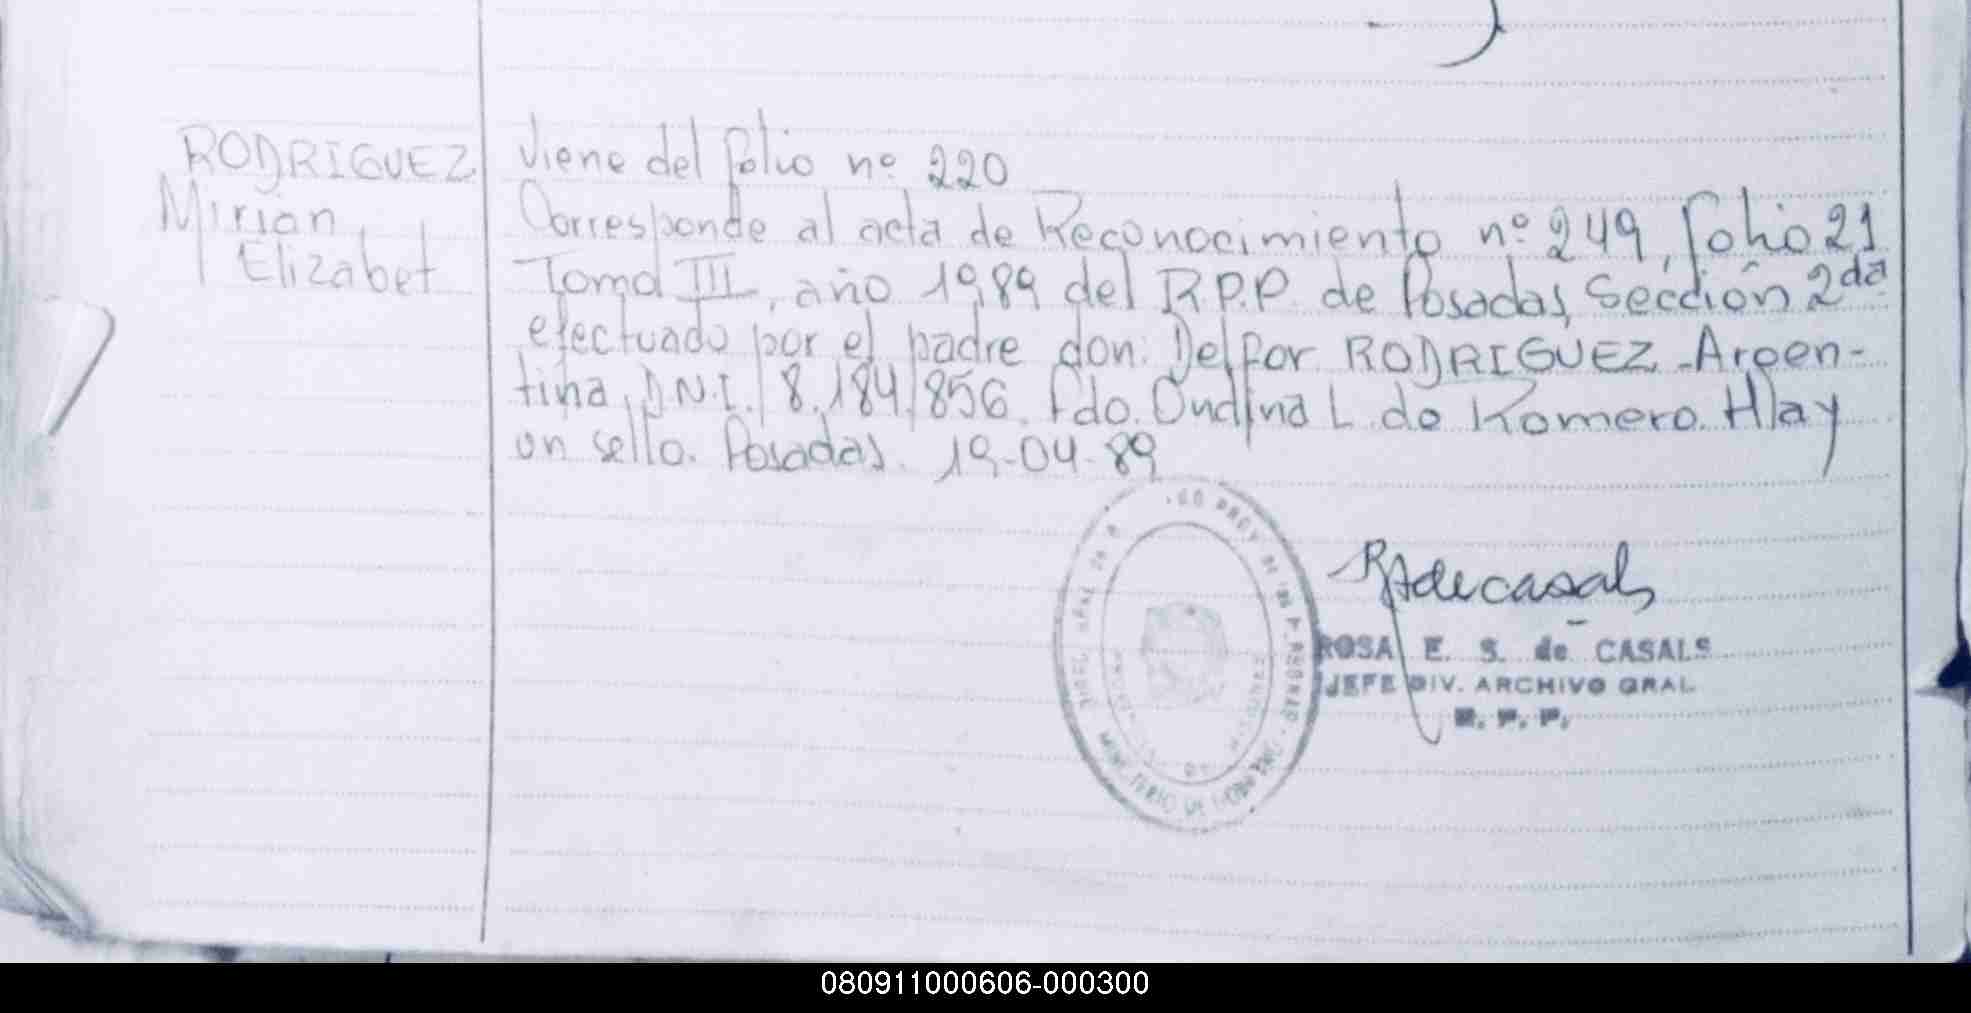 RODRIGUEZ
Mirian
Elizabet
Viene del folio nº 220
Corresponde al acta de Reconocimiento nº 249, folio 21
Tomo III, año 1989 del R.P.P. de Posadas, Sección 2da
efectuado por el padre don: Delfor RODRIGUEZ - Argen-
tina, D.N.I. 8.184.856. Fdo. Ondina L. de Romero. Hay
un sello. Posadas. 19-04-89
RAdecasals
ROSA E. S. de CASALS
JEFE DIV. ARCHIVO GRAL.
R. P. P.
MINISTERIO DE GOBIERNO
080911000606-000300